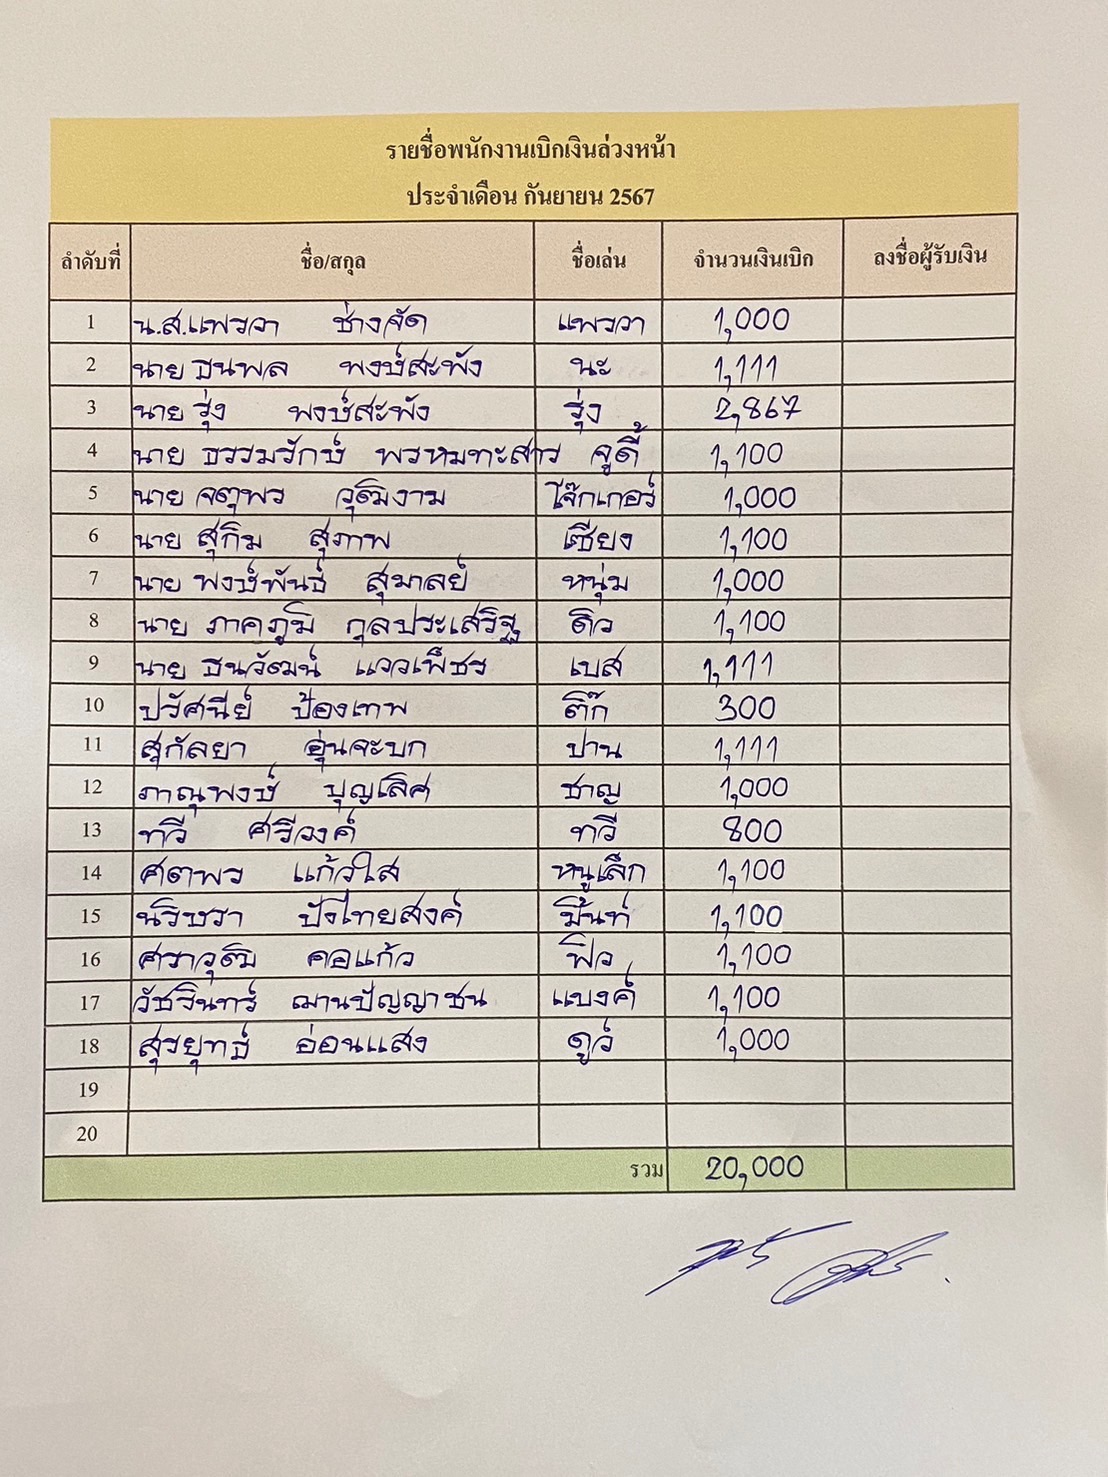 รายชื่อพนักงานเบิกเงินล่วงหน้า
ประจำเดือน กันยายน 2567
ลำดับที่ ชื่อ/สกุล ชื่อเล่น จำนวนเงินเบิก ลงชื่อผู้รับเงิน
1 น.ส.แพรวา ช่างจัด แพรวา 1,000
2 นาย ธนพล พงษ์สะพัง นะ 1,111
3 นาย รุ่ง พงษ์สะพัง รุ่ง 2,867
4 นาย ธรรมรักษ์ พรหมทะสาร จูดี้ 1,100
5 นาย จตุพร วุฒิงาม โจ๊กเกอร์ 1,000
6 นาย สุกิม สุภาพ เซียง 1,100
7 นาย พงษ์พันธ์ สุมาลย์ หนุ่ม 1,000
8 นาย ภาคภูมิ กุลประเสริฐ ดิว 1,100
9 นาย ธนวัฒน์ แววเพ็ชร เบส 1,111
10 ปรัศนีย์ ป้องเทพ ติ๊ก 300
11 สุกัลยา อุ่นจะบก ปาน 1,111
12 ภาณุพงษ์ บุญเลิศ ชาญ 1,000
13 ทวี ศรีวงค์ ทวี 800
14 ศตพร แก้วใส หนูเล็ก 1,100
15 นริศรา ปังไทยสงค์ มิ้นท์ 1,100
16 ศราวุฒิ คอแก้ว ฟิว 1,100
17 วัชรินทร์ ฌานปัญญาชน แบงค์ 1,100
18 สุรยุทธ์ อ่อนแสง ดูว์ 1,000
19
20
รวม 20,000